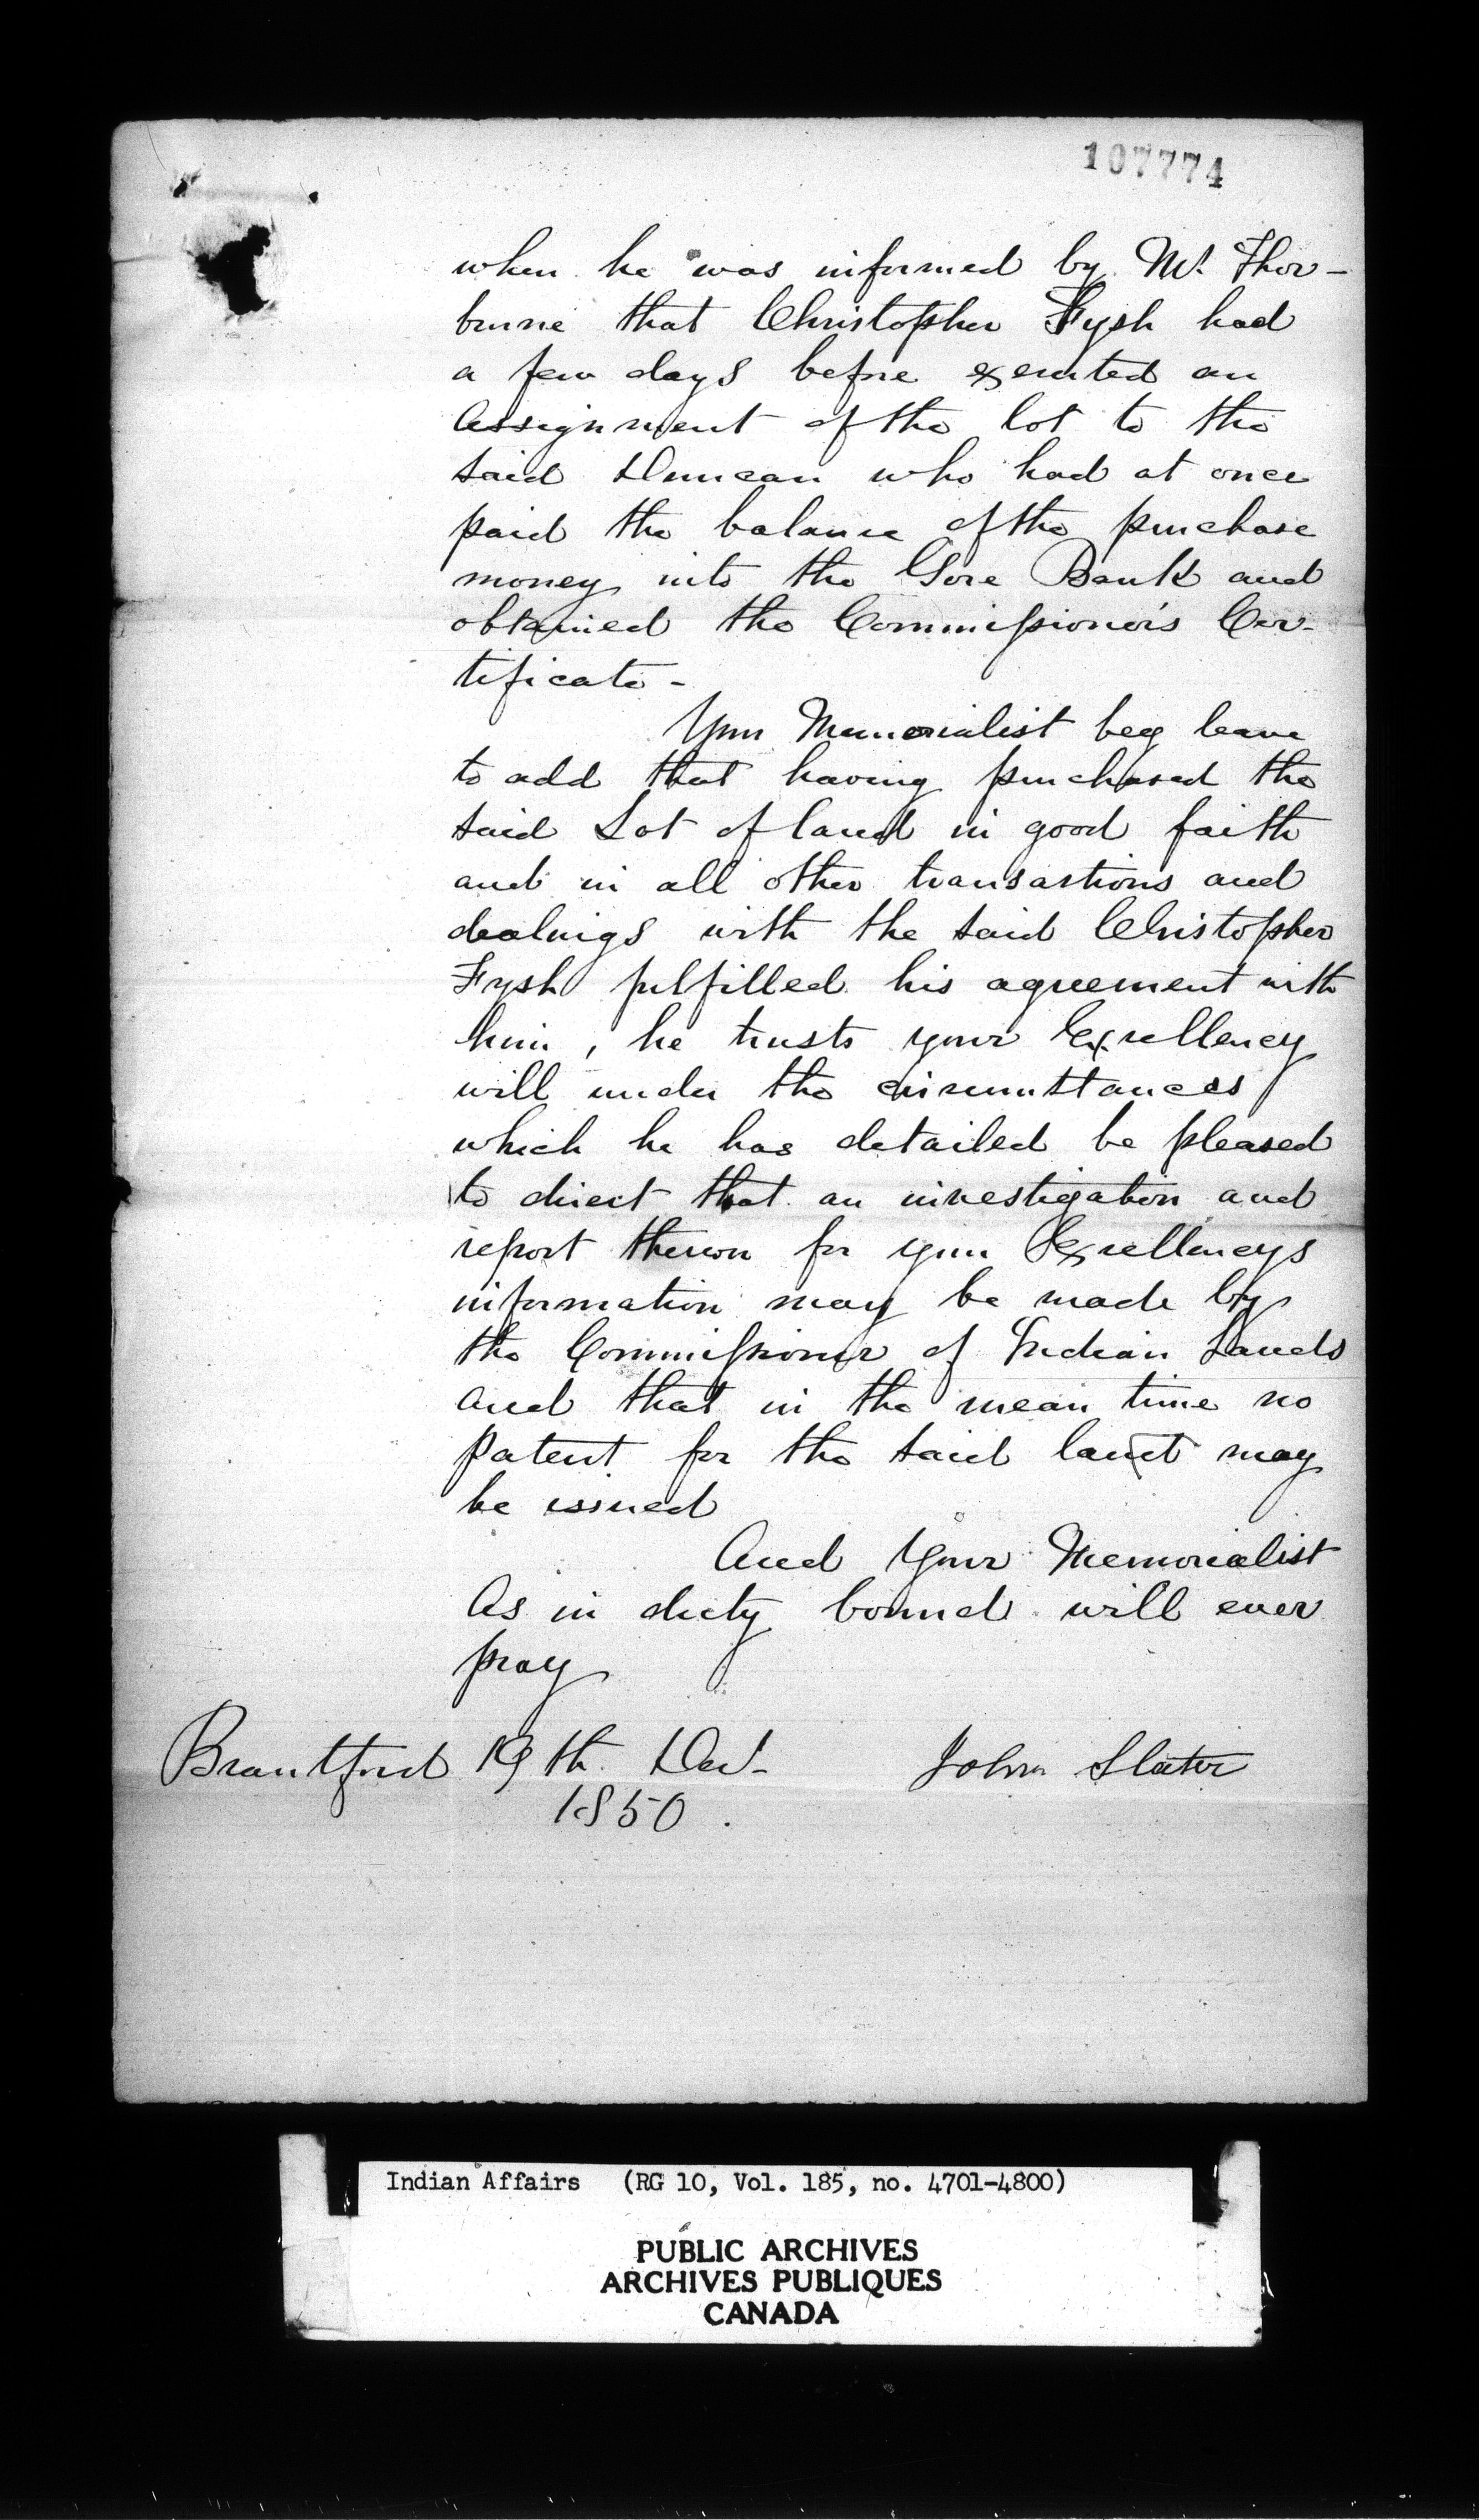 107774
when he was informed by Mr. Thor-
burne that Christopher Fysh had
a few days before executed an
Assignment of the lot to the
said Duncan who had at once
paid the balance of the purchase
money into the Gore Bank and
obtained the Commissioner's Cer-
tificate -
Your Memorialist beg leave
to add that having purchased the
said Lot of land in good faith
and in all other transactions and
dealings with the said Christopher
Fysh fulfilled his agreement with
him, he trusts your Excellency
will under the circumstances
which he has detailed be pleased
to direct that an investigation and
report thereon for your Excellencys
information may be made by
the Commissioner of Indian Lands
and that in the mean time no
patent for the said land may
be issued
And Your Memorialist
As in duty bound will ever
pray
Brantford 19th Decr.
1850.
John Slater
Indian Affairs (RG 10, Vol. 185, no. 4701-4800)
PUBLIC ARCHIVES
ARCHIVES PUBLIQUES
CANADA